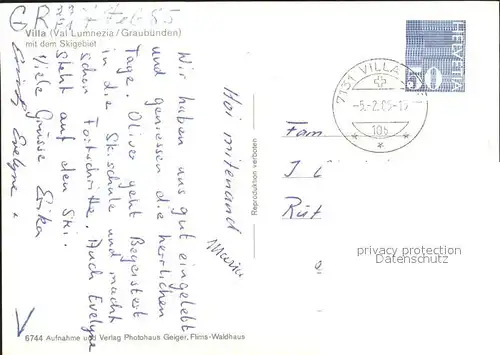 GR 23 Feb 85
Villa (Val Lumnezia/Graubünden)
mit dem Skigebiet
HELVETIA
50
7131 VILLA
-5.-2.85-15
10b
Hoi mitenand
Wir haben uns gut eingelebt
und geniessen die herrlichen
Tage. Oliver geht Begeistert
in die Skischule und macht
schon Fortschritte. Auch Evelyne
steht auf den Ski.
Viele Grüsse Erika
Evelyne
Reproduktion verboten
Fam
Rüt
privacy protection
Datenschutz
6744 Aufnahme und Verlag Photohaus Geiger, Flims-Waldhaus